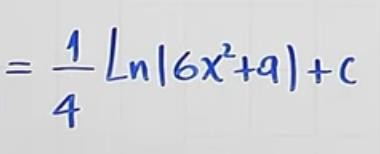 = 1/4 Ln|6x²+9|+c